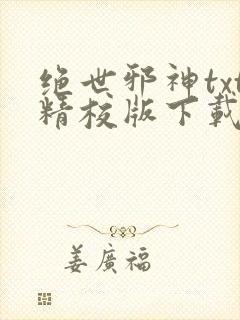 绝世邪神txt
精校版下載
姜廣福